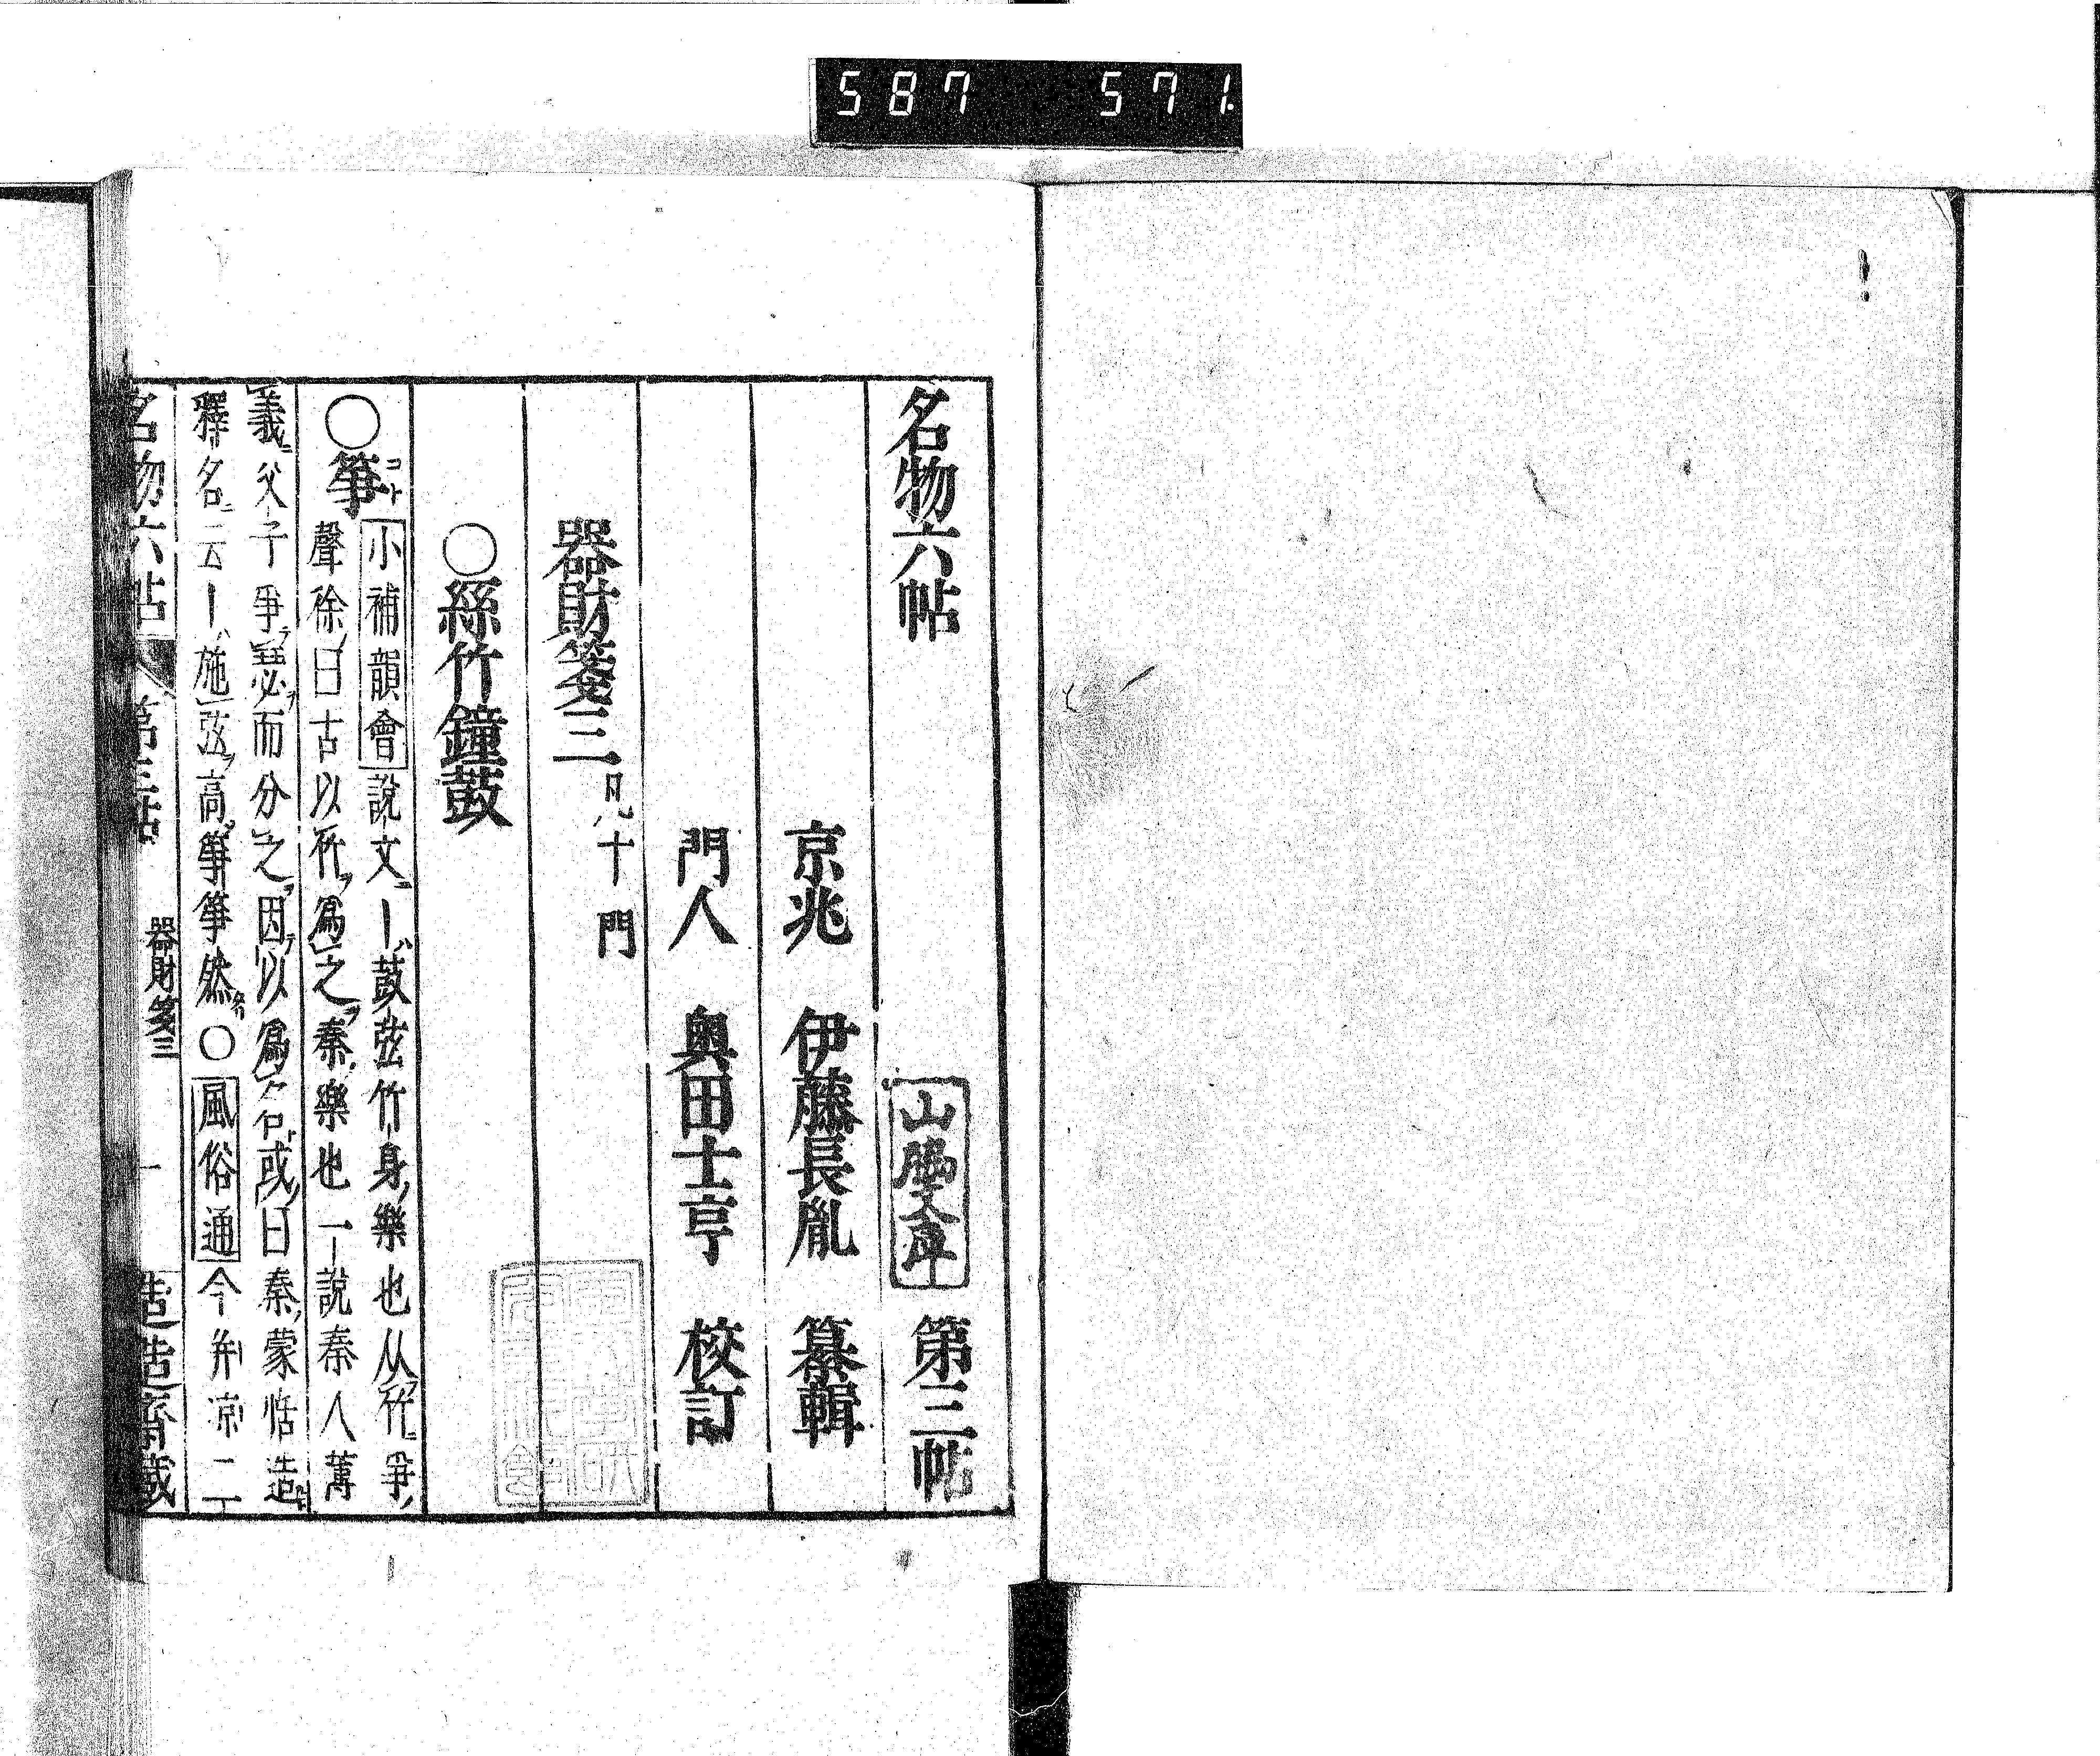 587 571.
名物六帖 山鹿文庫 第三帖
京兆 伊藤長胤 纂輯
門人 奥田士亨 校訂
器財箋三 凡十門
○絲竹鐘鼓
○箏コト 小補韻會說文ニ｜ハ鼓弦竹身ノ樂也从竹ニ爭ノ
聲徐曰古以竹ヲ爲之ヲ秦ノ樂也一說秦人蒙
義ニ父子爭瑟ヲ而分之ヲ因テ以爲名ト或ハ曰秦ノ蒙恬造
釋名ニ云｜ハ施弦ヲ高箏箏然○風俗通今并凉二
名物六帖 第三帖 器財箋三 一 造造齋藏